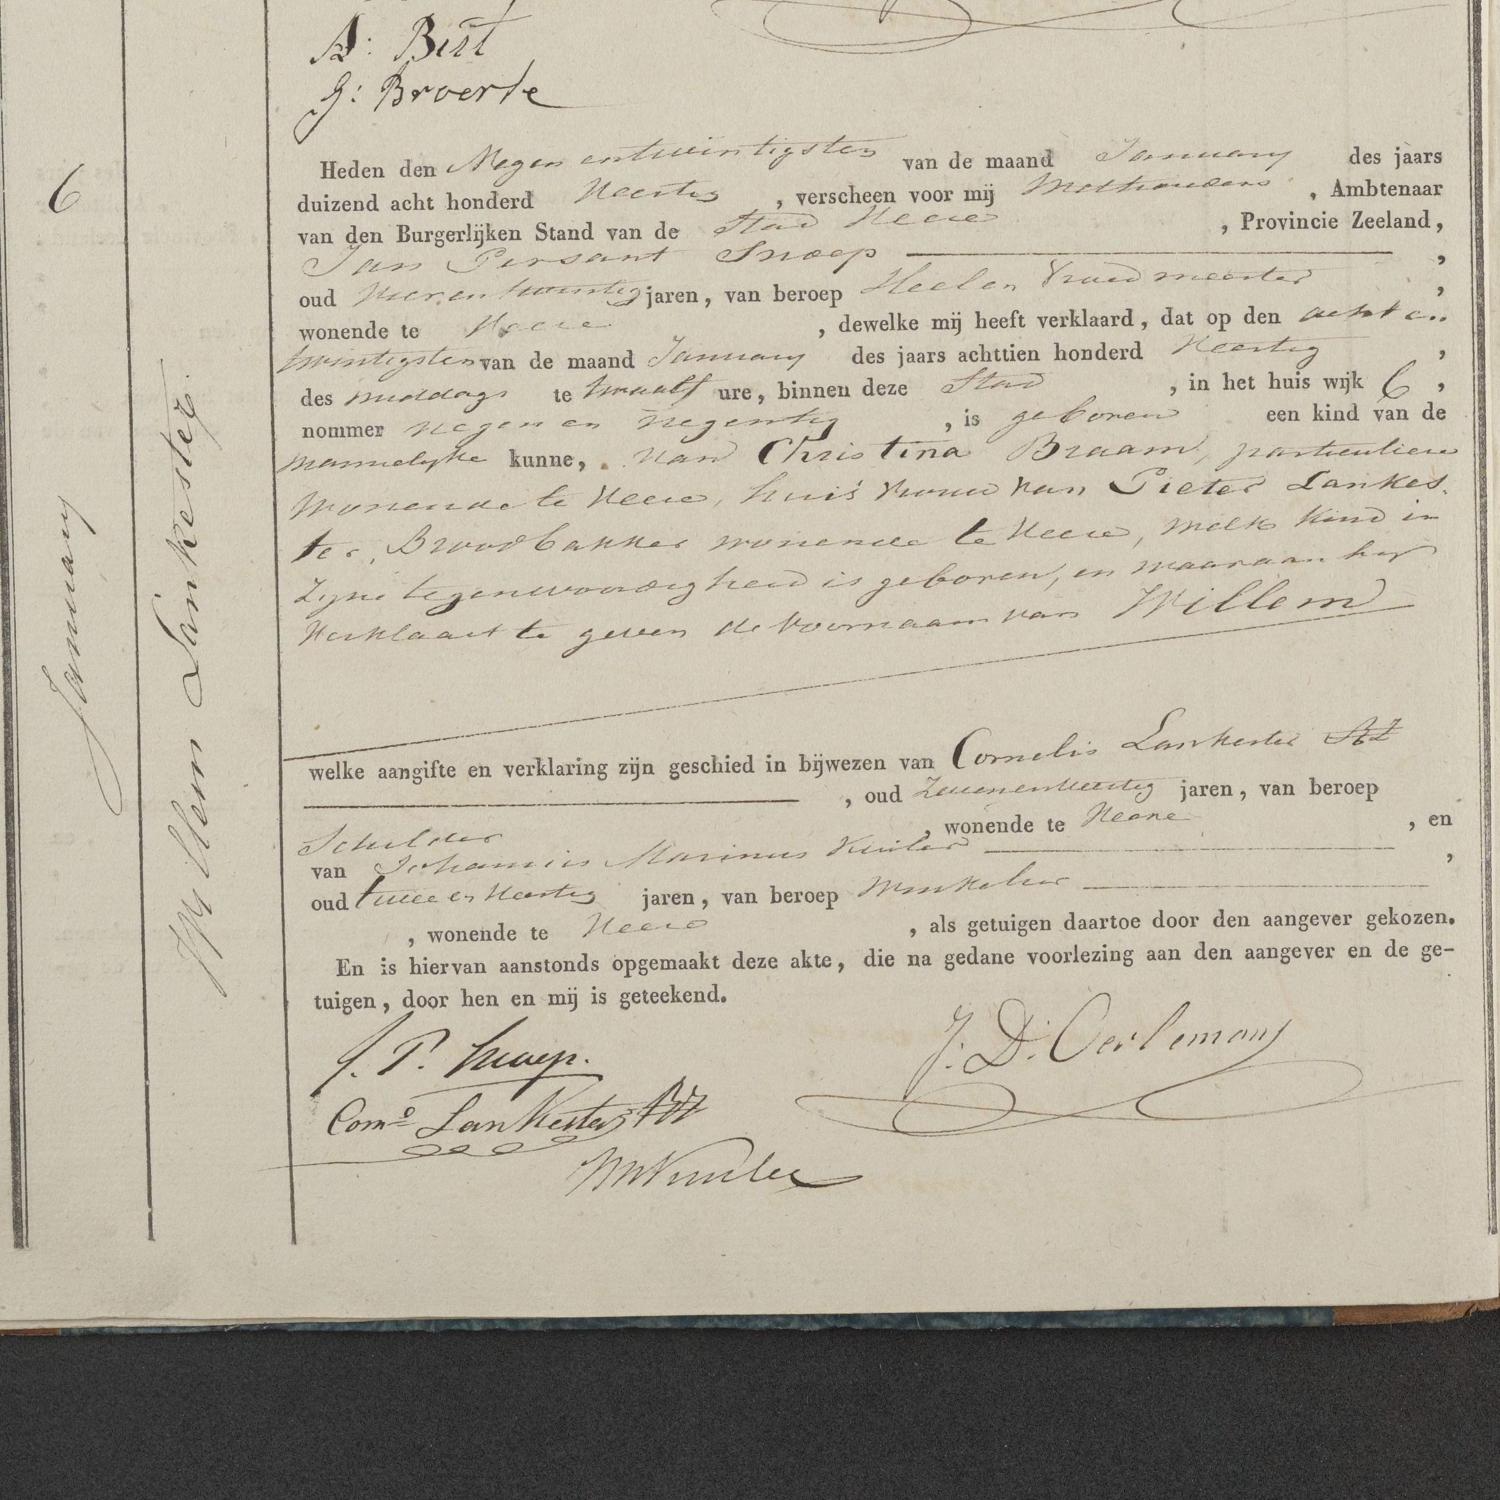 A: Bist
G: Broerse
6
January
Willem Lankester.
Heden den Negen entwintigsten van de maand January des jaars
duizend acht honderd Veertig , verscheen voor mij Wethouder , Ambtenaar
van den Burgerlijken Stand van de Stad Veere , Provincie Zeeland,
Jan Persant Snoep ,
oud vier en twintig jaren, van beroep Heel en Vroedmeester ,
wonende te Veere , dewelke mij heeft verklaard, dat op den acht en
twintigsten van de maand January des jaars achttien honderd Veertig ,
des middags te twaalf ure, binnen deze Stad , in het huis wijk C ,
nommer negen en negentig , is geboren een kind van de
mannelyke kunne, van Christina Braam, particuliere
wonende te Veere, huisvrouw van Pieter Lankes-
ter, Broodbakker wonende te Veere, welk kind in
Zyne tegenwoordigheid is geboren, en waaraan hy
verklaart te geven de voornaam van Willem
welke aangifte en verklaring zijn geschied in bijwezen van Cornelis Lankester
, oud Zevenenveertig jaren, van beroep
Schilder , wonende te Veere , en
van Johannis Marinus Kuiler ,
oud twee en Veertig jaren, van beroep Winkelier
, wonende te Veere , als getuigen daartoe door den aangever gekozen.
En is hiervan aanstonds opgemaakt deze akte, die na gedane voorlezing aan den aangever en de ge-
tuigen, door hen en mij is geteekend.
J. P. Snoep.
J: D: Oerlemans
Corns Lankester